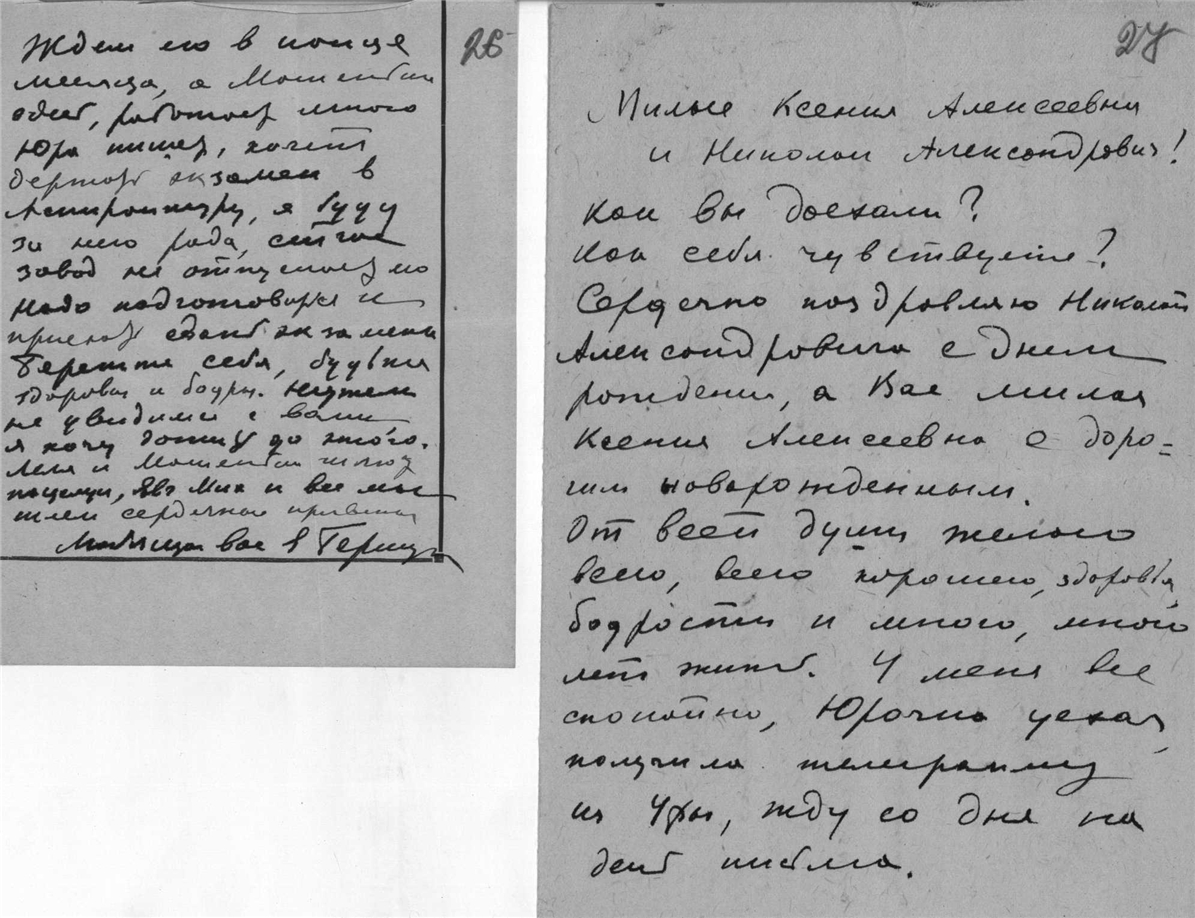 26
Ждем его в конце
месяца, а
работает много
Юра пишет, хочет
держать экзамен в
Аспирантуру, я буду
за него рада, сейчас
завод не отпускает но
надо подготовиться и
приехать сдать экзамены
Берегите себя, будьте
здоровы и бодры. Неужели
не увидимся с вами
я хочу дотяну до этого.
Леля и шлют
поцелуи, Явз Мих и все мы
шлем сердечные приветы
Любящая вас
27
Милые Ксения Алексеевна
и Николай Александрович!
Как вы доехали?
Как себя чувствуете?
Сердечно поздравляю Николая
Александровича с днем
рождения, а Вас милая
Ксения Алексеевна с доро=
гим новорожденным.
От всей души желаю
всего, всего хорошего, здоровья,
бодрости и много, много
лет жить. У меня все
спокойно, Юрочка уехал,
получила телеграмму
из Уфы, жду со дня на
день письма.